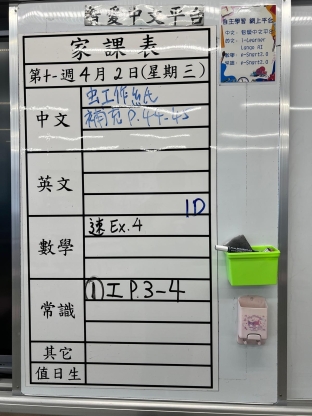 智愛中文平台
家課表
第十一週4月2日(星期三)
中文
虫工作紙
補充P.44-45
英文
1D
數學
速Ex.4
常識
①工P.3-4
其它
值日生
自主學習 網上平台
中文：智愛中文平台
英文：i-Learner
數學：e-Short2.0
常識：e-Short2.0